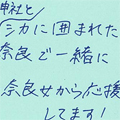 神社と
シカに囲まれた
奈良で一緒に
奈良女から応援
してます!